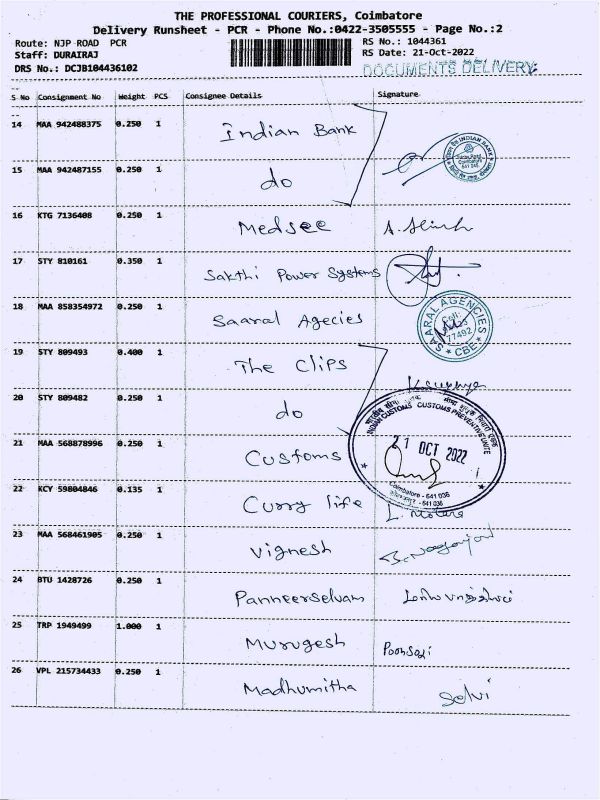 THE PROFESSIONAL COURIERS, Coimbatore
Delivery Runsheet - PCR - Phone No.:0422-3505555 - Page No.:2
Route: NJP ROAD PCR
RS No.: 1044361
Staff: DURAIRAJ
RS Date: 21-Oct-2022
DRS No.: DCJB104436102
DOCUMENTS DELIVERY
S No Consignment No Weight PCS Consignee Details Signature
14 MAA 942488375 0.250 1 Indian Bank
15 MAA 942487155 0.250 1 do
INDIAN BANK
Coimbatore
16 KTG 7136408 0.250 1 Medsee
17 STY 810161 0.350 1 Sakthi Power Systems
18 MAA 858354972 0.250 1 Saaral Agecies
SAARAL AGENCIES
Cell:
77492
CBE
19 STY 809493 0.400 1 The Clips
20 STY 809482 0.250 1 do
21 MAA 568878996 0.250 1 Customs
INDIAN CUSTOMS CUSTOMS PREVENTIVE UNIT
21 OCT 2022
Coimbatore - 641 036
22 KCY 59804846 0.135 1 Curry life
23 MAA 568461905 0.250 1 Vignesh
24 BTU 1428726 0.250 1 Panneerselvam
25 TRP 1949499 1.000 1 Murugesh
26 VPL 215734433 0.250 1 Madhumitha Selvi